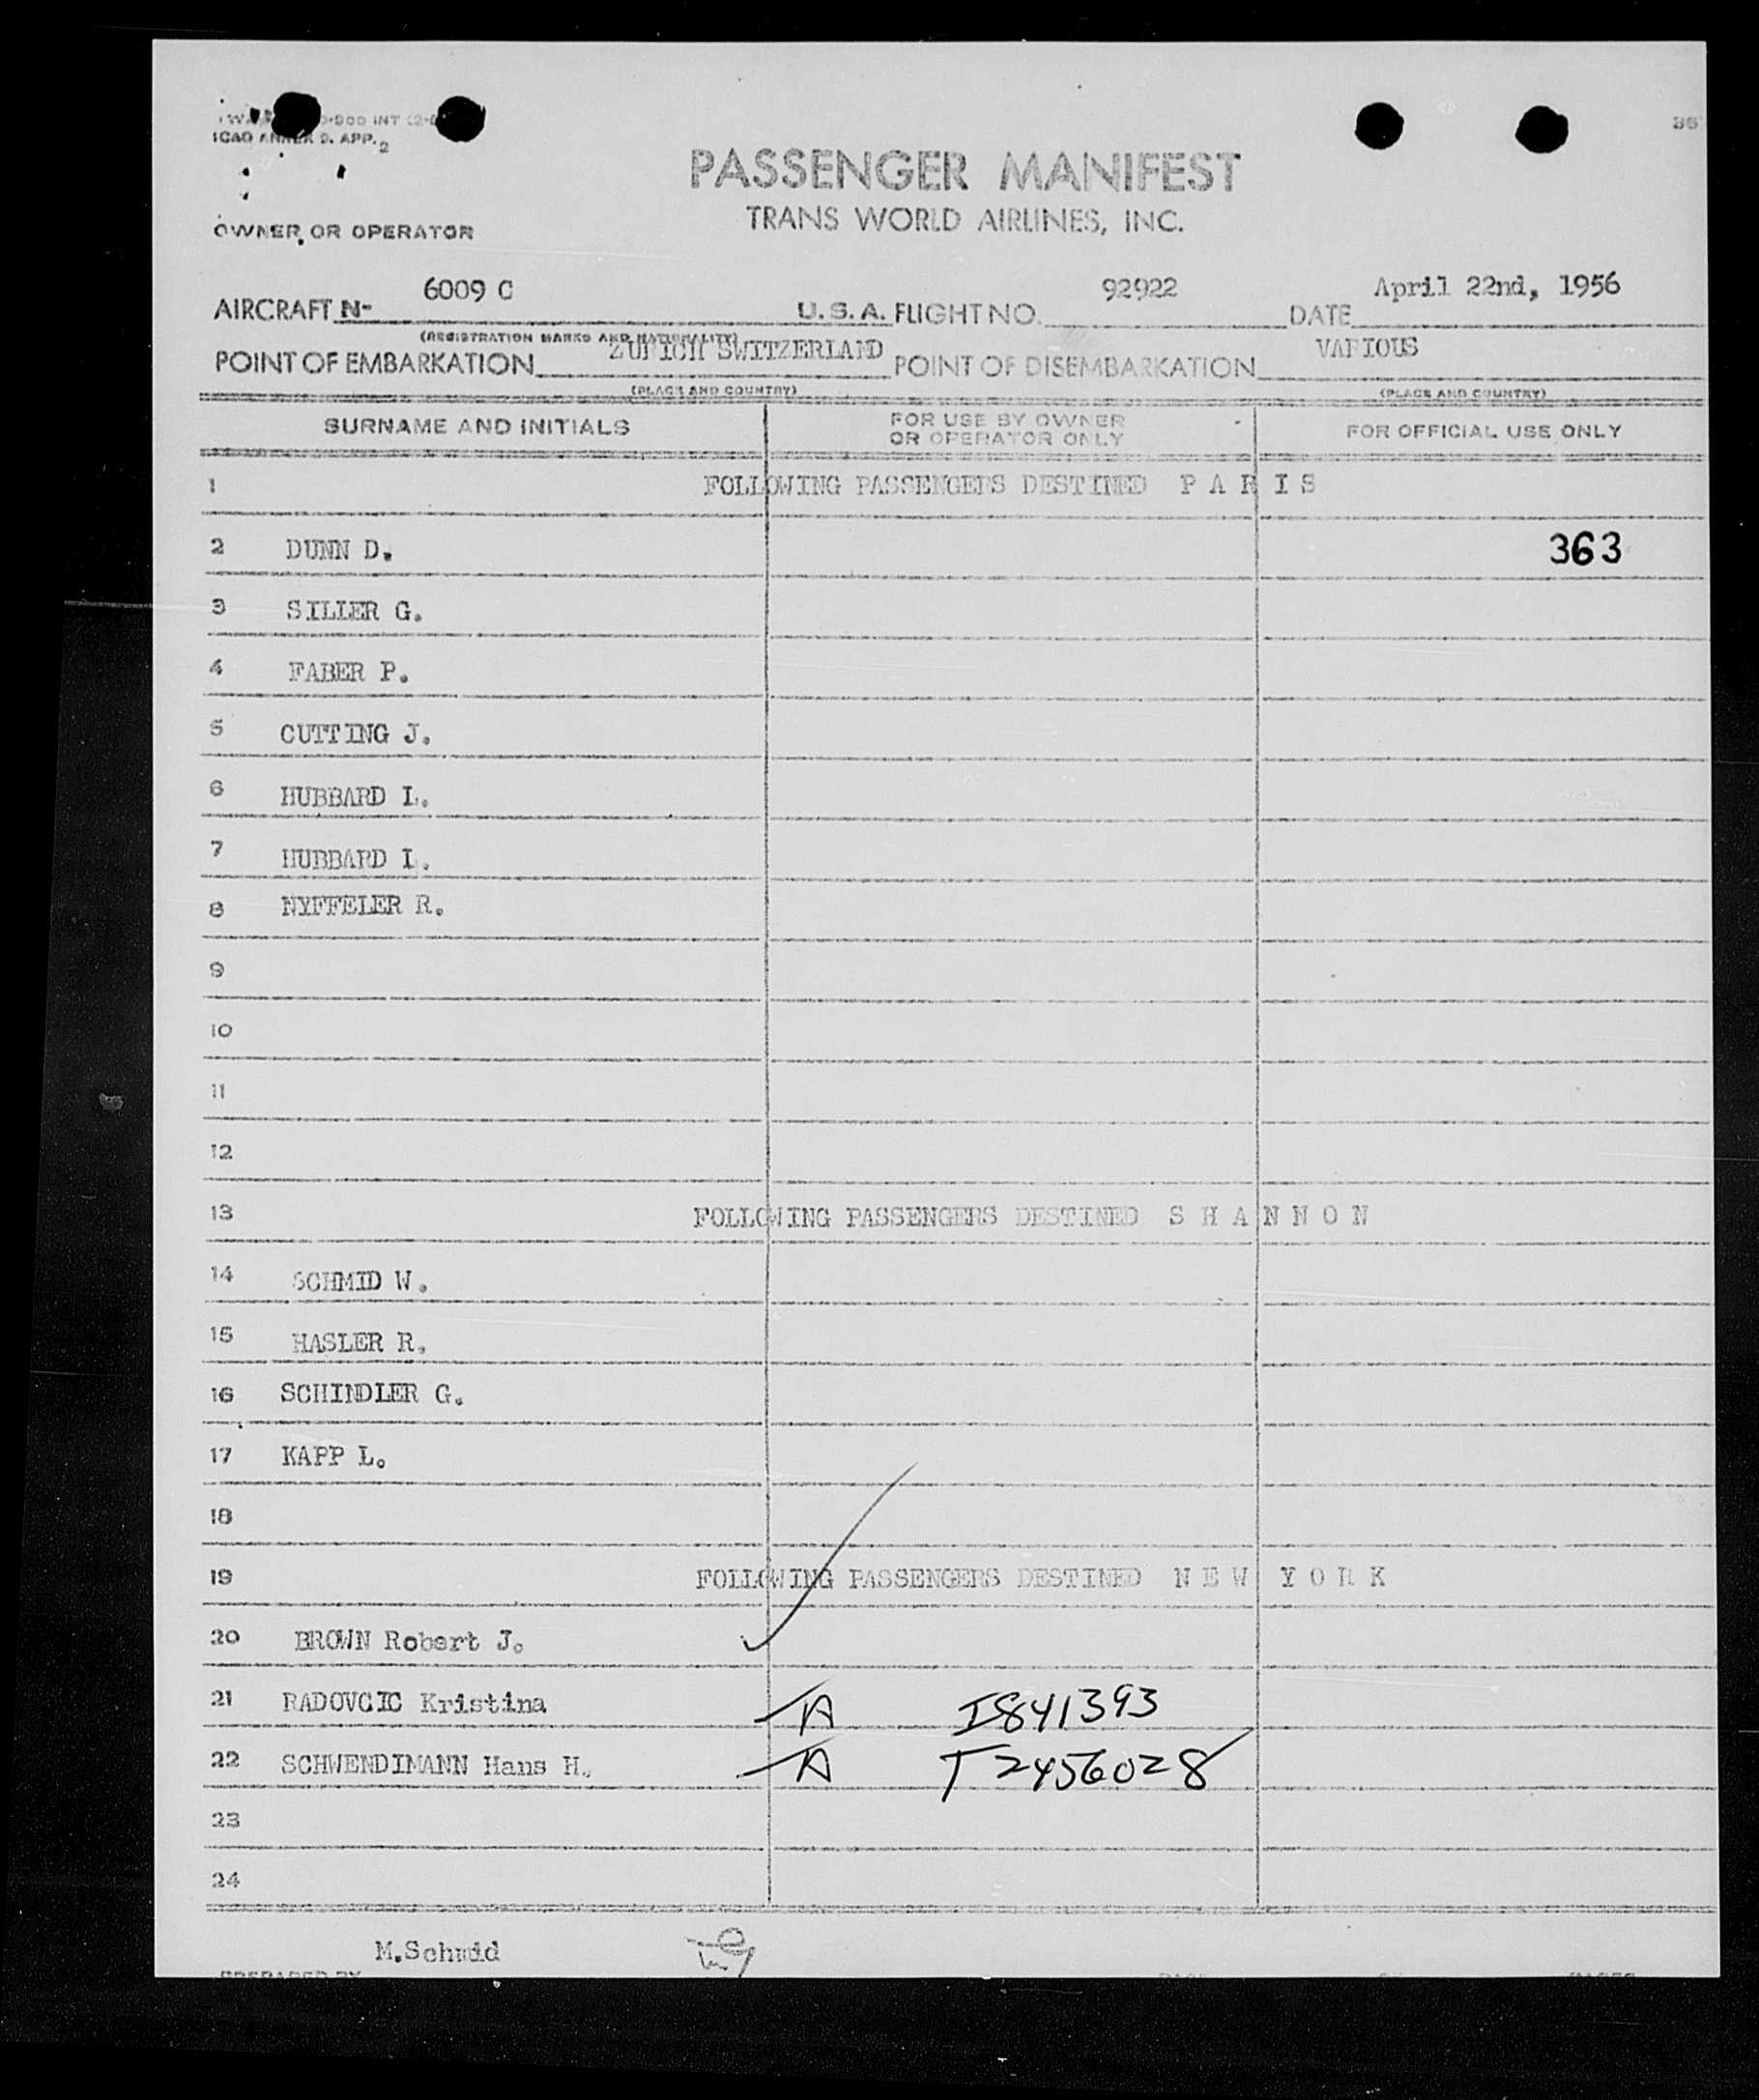 ICAO ANNEX 9. APP. 2
PASSENGER MANIFEST
TRANS WORLD AIRLINES, INC.
OWNER OR OPERATOR
AIRCRAFT N- 6009 C U.S.A. FLIGHT NO. 92922 DATE April 22nd, 1956
(REGISTRATION MARKS AND NATIONALITY)
POINT OF EMBARKATION ZURICH SWITZERLAND POINT OF DISEMBARKATION VARIOUS
(PLACE AND COUNTRY) (PLACE AND COUNTRY)
SURNAME AND INITIALS FOR USE BY OWNER OR OPERATOR ONLY FOR OFFICIAL USE ONLY
1 FOLLOWING PASSENGERS DESTINED P A R I S
2 DUNN D. 363
3 SILLER G.
4 FABER P.
5 CUTTING J.
6 HUBBARD L.
7 HUBBARD I.
8 NYFFELER R.
9
10
11
12
13 FOLLOWING PASSENGERS DESTINED S H A N N O N
14 SCHMID W.
15 HASLER R.
16 SCHINDLER G.
17 KAPP L.
18
19 FOLLOWING PASSENGERS DESTINED N E W Y O R K
20 BROWN Robert J.
21 RADOVCIC Kristina A I841393
22 SCHWENDIMANN Hans H. A T2456028
23
24
M.Schmid